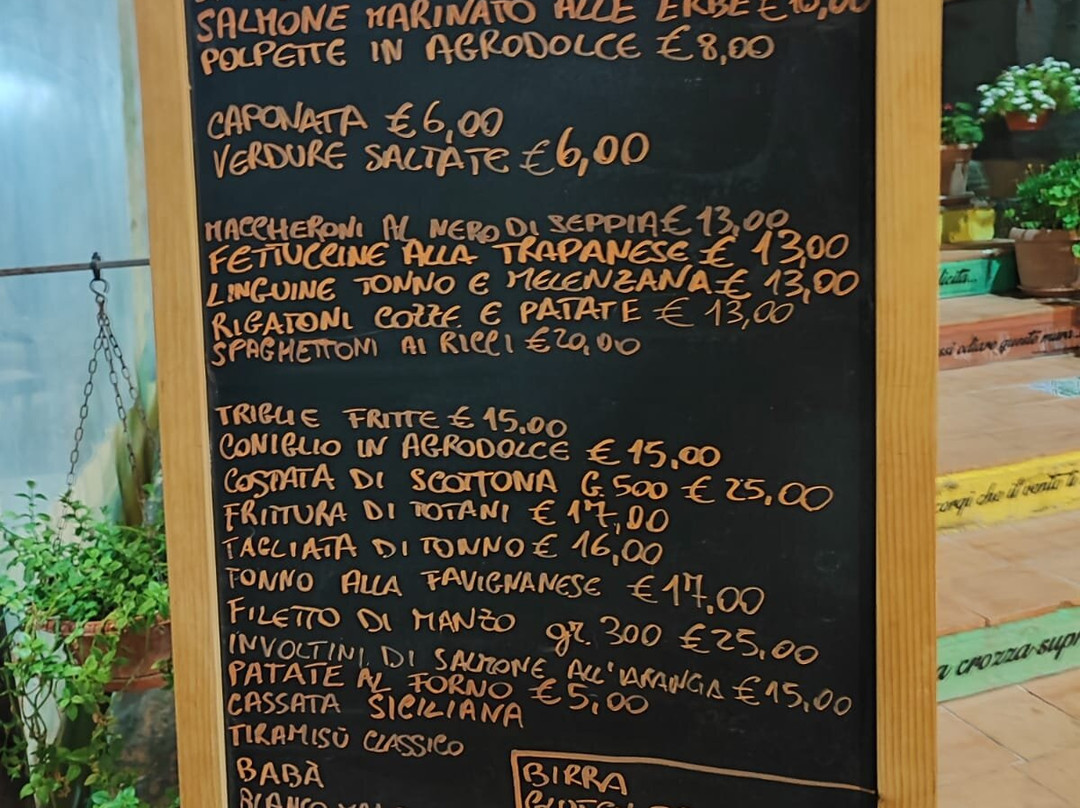 SALMONE MARINATO ALLE ERBE € 10,00
POLPETTE IN AGRODOLCE € 8,00
CAPONATA € 6,00
VERDURE SALTATE € 6,00
MACCHERONI AL NERO DI SEPPIA € 13,00
FETTUCCINE ALLA TRAPANESE € 13,00
LINGUINE TONNO E MELENZANA € 13,00
RIGATONI COZZE E PATATE € 13,00
SPAGHETTONI AI RICCI € 20,00
TRIGLIE FRITTE € 15.00
CONIGLIO IN AGRODOLCE € 15,00
COSTATA DI SCOTTONA G. 500 € 25,00
FRITTURA DI TOTANI € 17,00
TAGLIATA DI TONNO € 16,00
TONNO ALLA FAVIGNANESE € 17.00
FILETTO DI MANZO gr. 300 € 25,00
INVOLTINI DI SALMONE ALL'ARANCIA € 15,00
PATATE AL FORNO € 5,00
CASSATA SICILIANA
TIRAMISÙ CLASSICO
BABÀ
BIRRA
a crozza supr